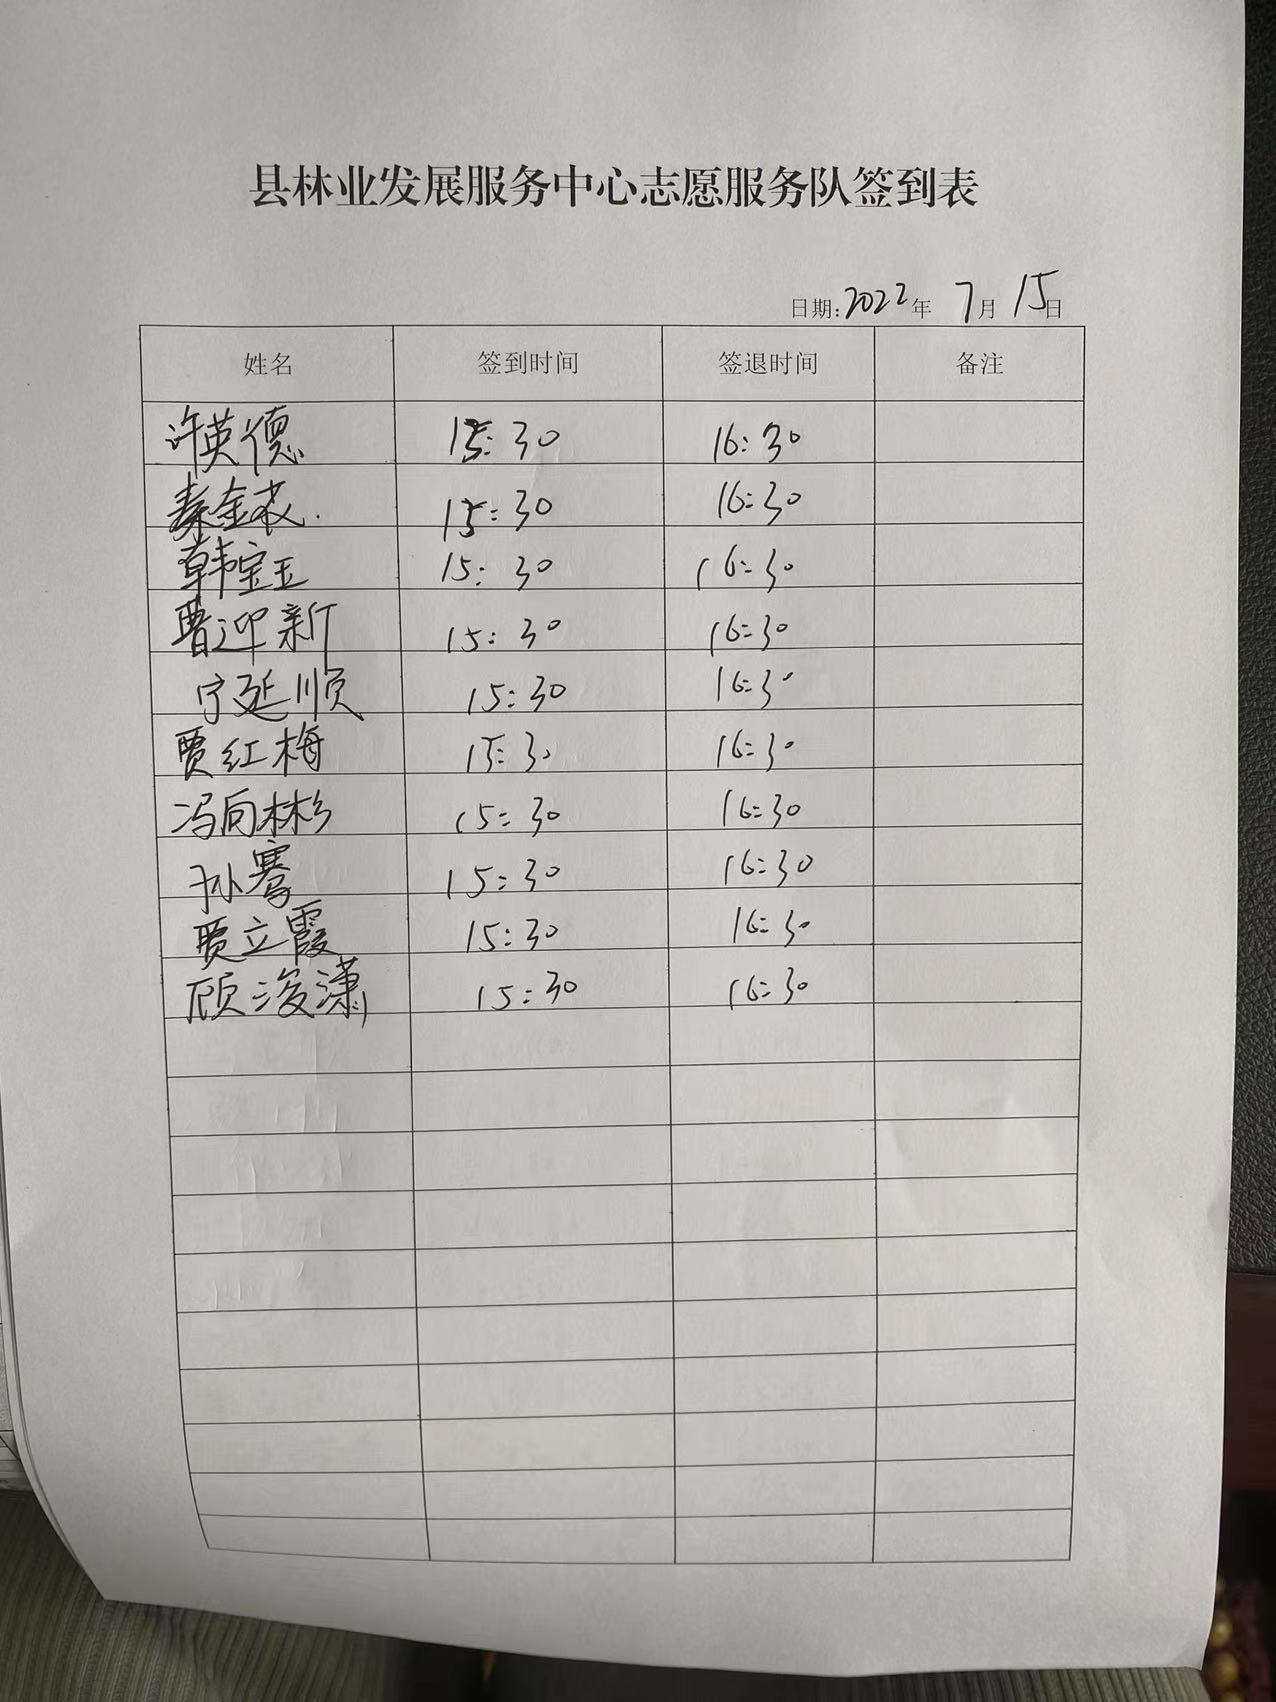 县林业发展服务中心志愿服务队签到表
日期:2022年 7月 15日
姓名 签到时间 签退时间 备注
许英德 15:30 16:30
秦金枝 15:30 16:30
韩宝玉 15:30 16:30
晋迎新 15:30 16:30
宁延顺 15:30 16:30
贾红梅 15:30 16:30
冯向彬 15:30 16:30
孙骞 15:30 16:30
贾立霞 15:30 16:30
顾浚潇 15:30 16:30